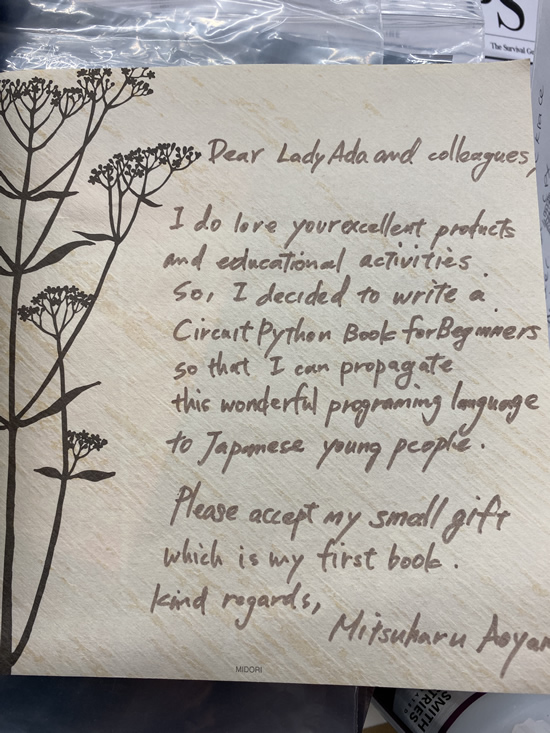 The Survival
Dear Lady Ada and colleagues,
I do love your excellent products
and educational activities.
So, I decided to write a
Circuit Python Book for Beginners
so that I can propagate
this wonderful programing language
to Japanese young people.
Please accept my small gift
which is my first book.
kind regards,
Mitsuharu
MIDORI
SMITH